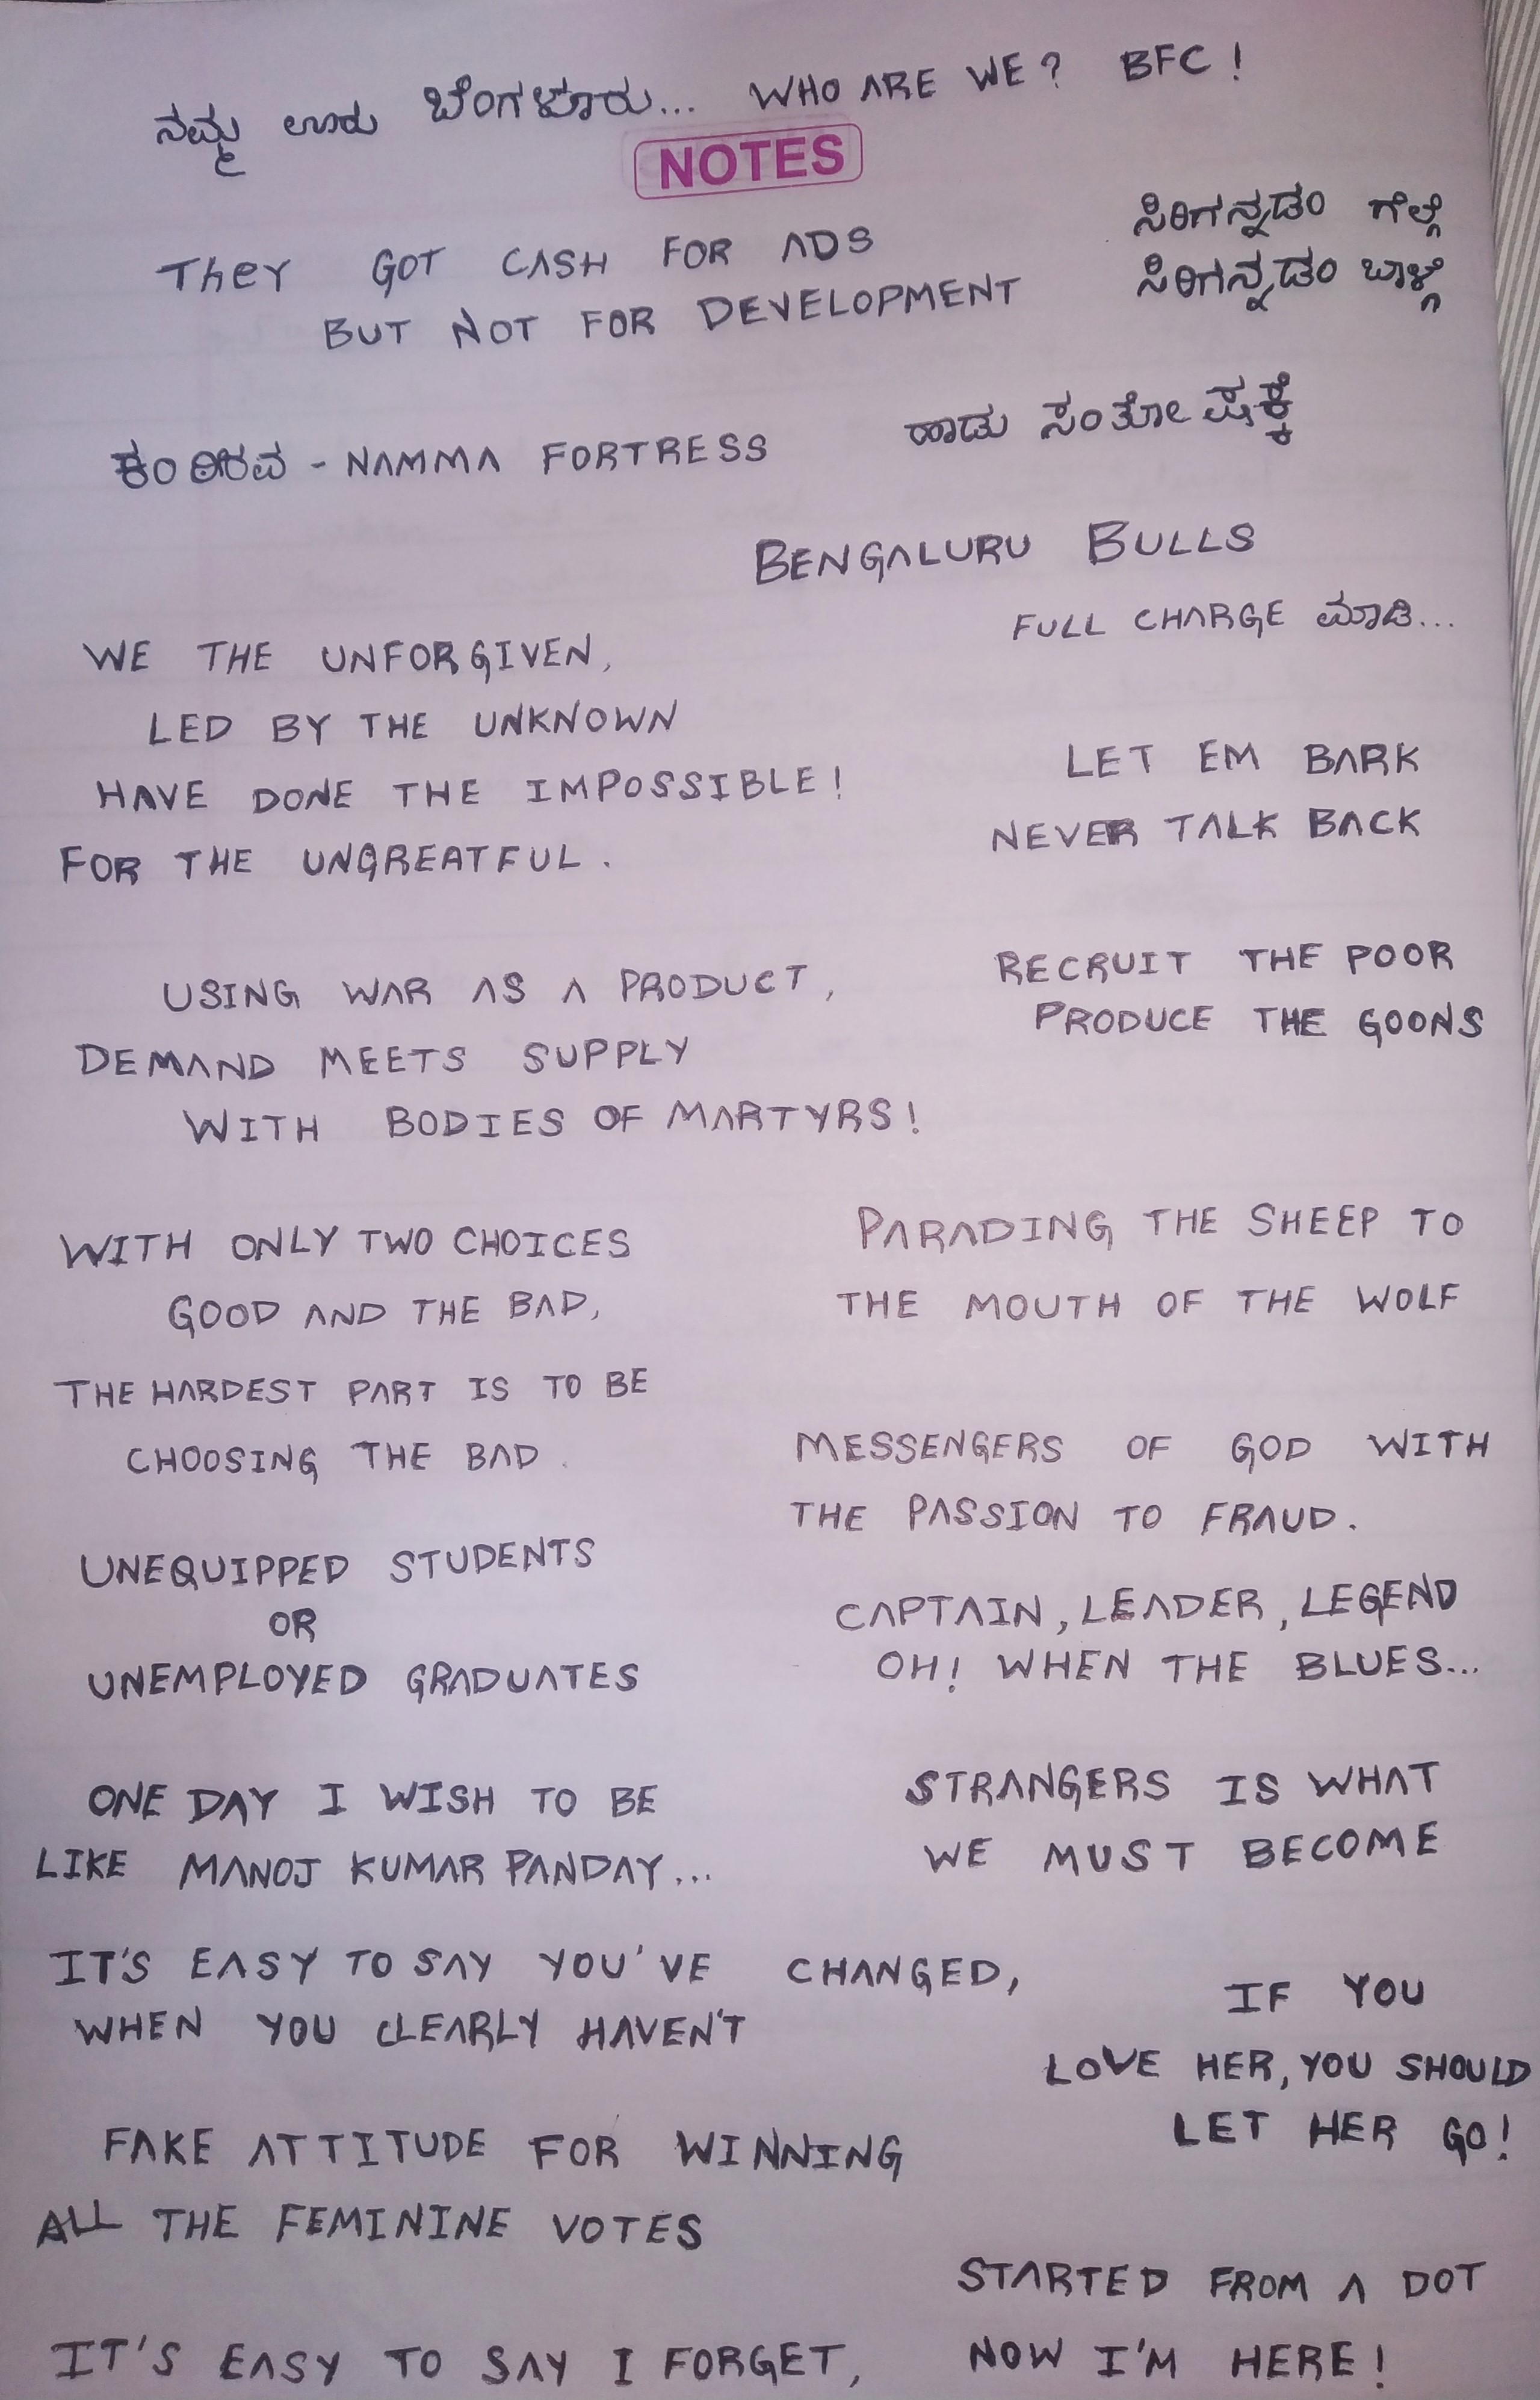 ನಮ್ಮ ಊರು ಬೆಂಗಳೂರು... WHO ARE WE? BFC!
NOTES
They GOT CASH FOR ADS
BUT NOT FOR DEVELOPMENT
ಸಿರಿಗನ್ನಡಂ ಗೆಲ್ಗೆ
ಸಿರಿಗನ್ನಡಂ ಬಾಳ್ಗೆ
ಕಂಠೀರವ - NAMMA FORTRESS
ಹಾಡು ಸಂತೋಷಕ್ಕೆ
BENGALURU BULLS
FULL CHARGE ಮಾಡಿ...
WE THE UNFORGIVEN,
LED BY THE UNKNOWN
HAVE DONE THE IMPOSSIBLE!
FOR THE UNGREATFUL.
LET EM BARK
NEVER TALK BACK
USING WAR AS A PRODUCT,
DEMAND MEETS SUPPLY
WITH BODIES OF MARTYRS!
RECRUIT THE POOR
PRODUCE THE GOONS
WITH ONLY TWO CHOICES
GOOD AND THE BAD,
THE HARDEST PART IS TO BE
CHOOSING THE BAD.
PARADING THE SHEEP TO
THE MOUTH OF THE WOLF
MESSENGERS OF GOD WITH
THE PASSION TO FRAUD.
UNEQUIPPED STUDENTS
OR
UNEMPLOYED GRADUATES
CAPTAIN, LEADER, LEGEND
OH! WHEN THE BLUES...
ONE DAY I WISH TO BE
LIKE MANOJ KUMAR PANDAY...
STRANGERS IS WHAT
WE MUST BECOME
IT'S EASY TO SAY YOU'VE CHANGED,
WHEN YOU CLEARLY HAVEN'T
IF YOU
LOVE HER, YOU SHOULD
LET HER GO!
FAKE ATTITUDE FOR WINNING
ALL THE FEMININE VOTES
STARTED FROM A DOT
NOW I'M HERE!
IT'S EASY TO SAY I FORGET,